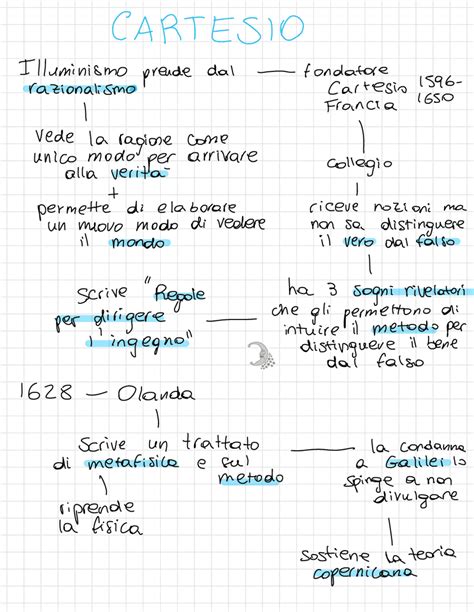 CARTESIO
Illuminismo prende dal
razionalismo
fondatore
Cartesio
Francia
1596-
1650
vede la ragione come
unico modo per arrivare
alla verità
+
permette di elaborare
un nuovo modo di vedere
il mondo
collegio
riceve nozioni ma
non sa distinguere
il vero dal falso
ha 3 sogni rivelatori
che gli permettono di
intuire il metodo per
distinguere il bene
dal falso
Scrive "Regole
per dirigere
l'ingegno"
1628 — Olanda
Scrive un trattato
di metafisica e sul
metodo
riprende
la fisica
la condanna
a Galilei lo
spinge a non
divulgare
sostiene la teoria
copernicana